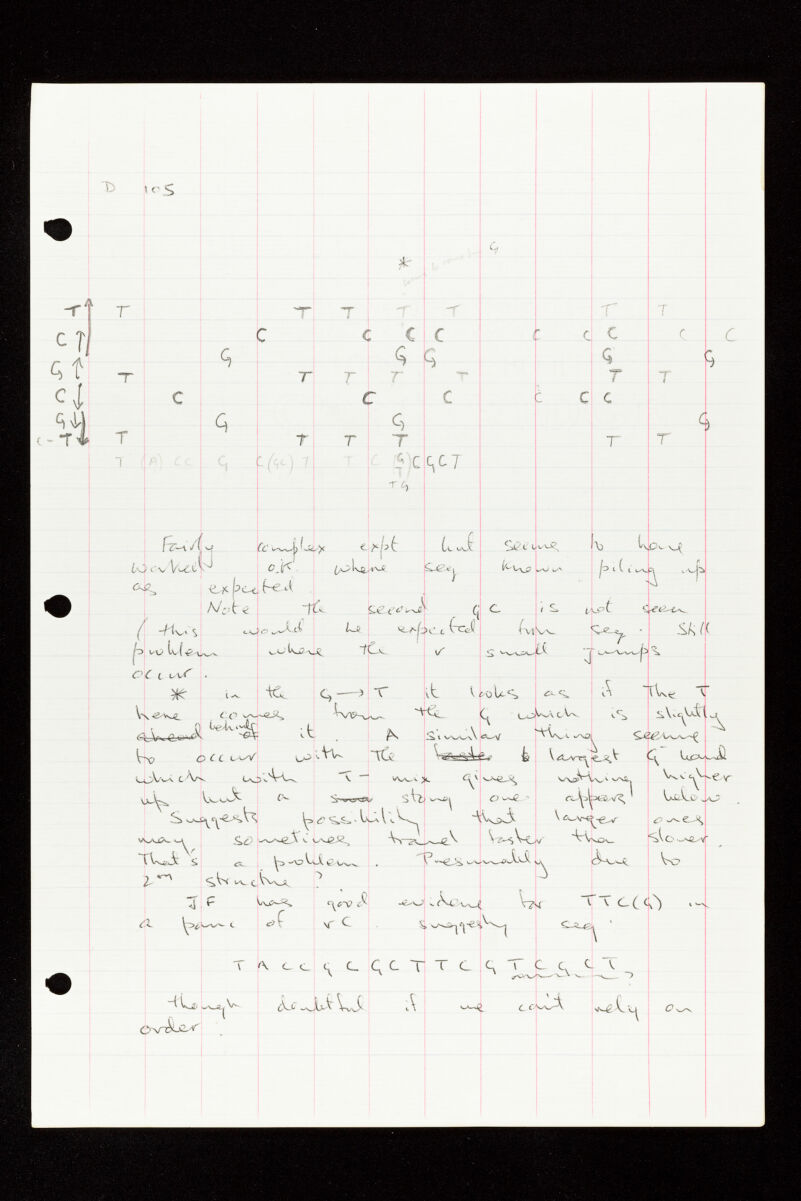 D 105
* G
T T T T T T T T
C C C C C C C C C C
G G G G G G
T T T T T T T
C C C C C C C
G G G G
C - T T T T T T T
T (A) CC G C (GC) T T C (G) C G C T
T
T G
Fairly complex expt but seems to have
worked o.k. where seq known piling up
as expected
Note the second GC is not seen
( this would be expected from seq. Still
problem where the v small jumps
occur.
* in the G → T it looks as if the T
here comes from the G which is slightly
ahead behind of it. A similar thing seems
to occur with the faster b largest G band
which with T - mix gives nothing higher
up but a strong one appears below.
Suggests possibility that larger ones
may sometimes travel faster than slower.
That's a problem. Presumably due to
2ary structure?
JF has good evidence for TTC(G) in
a of rC. suggesting seq.
T A C C G C G C T T C G T C G C T ?
though doubtful if we can't rely on
order.